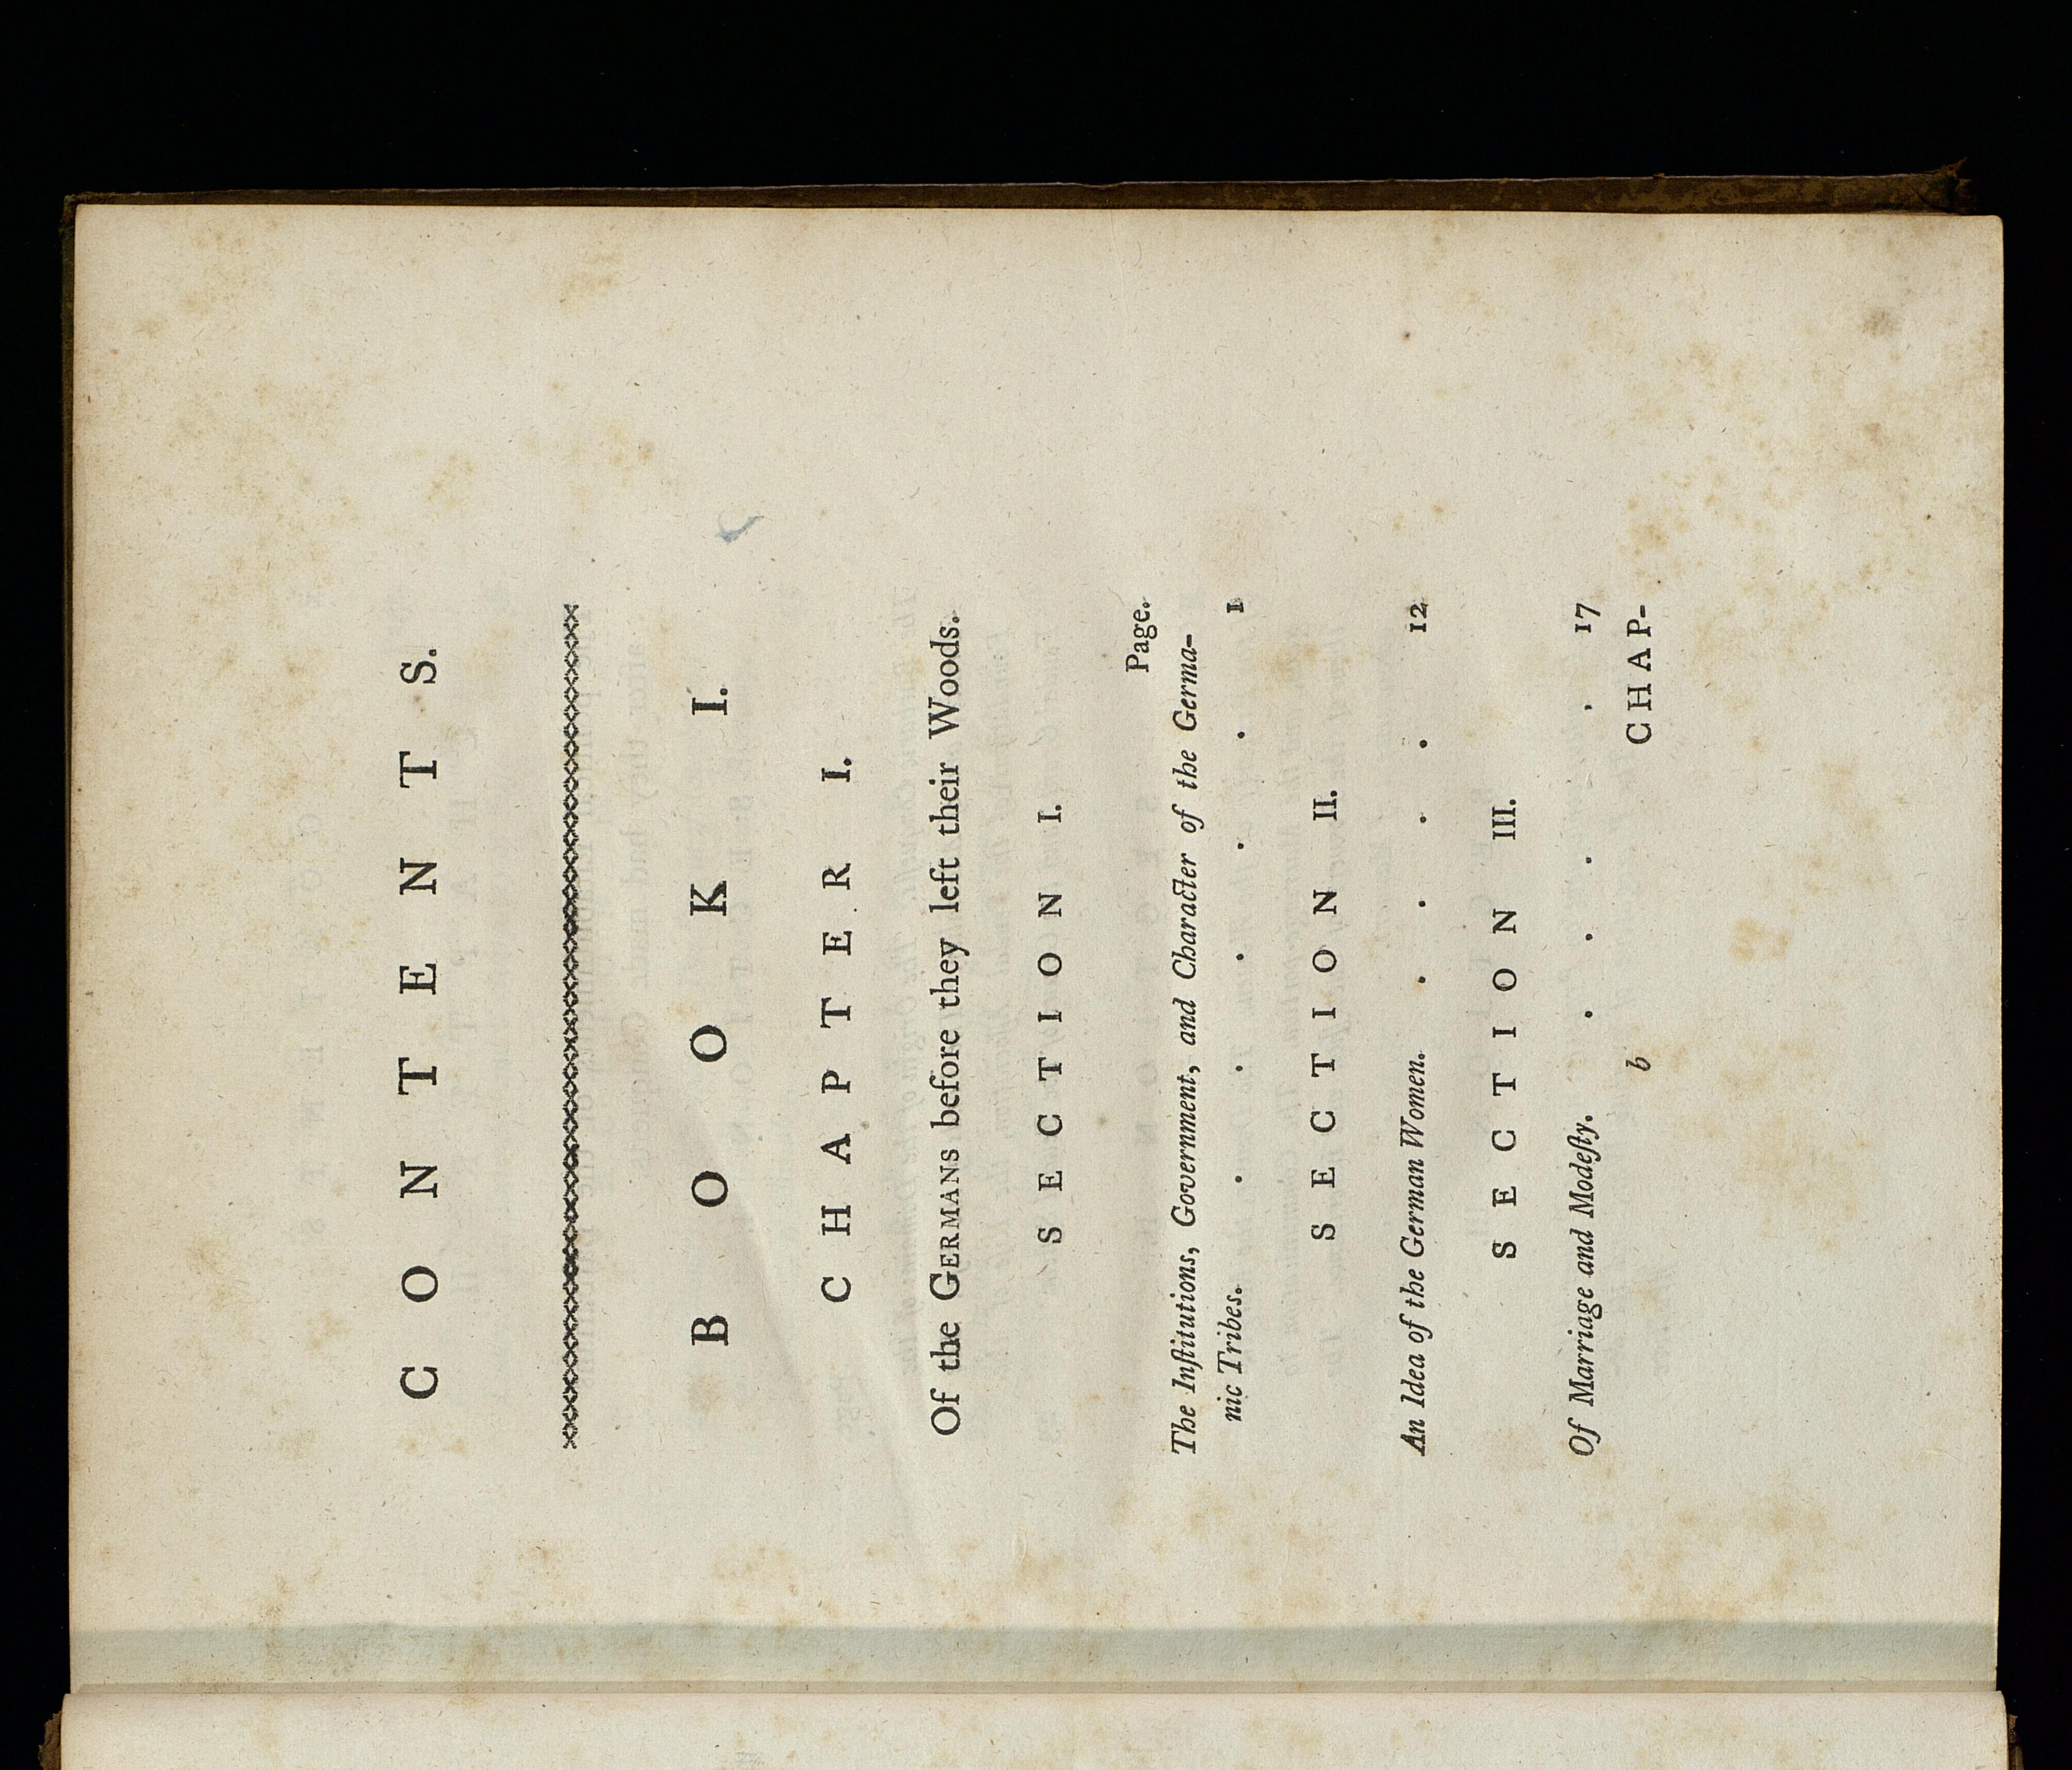 CONTENTS.
BOOK I.
CHAPTER I.
Of the GERMANS before they left their Woods.
SECTION I.
Page.
The Inſtitutions, Government, and Character of the Germa-
nic Tribes. . . . . . 1
SECTION II.
An Idea of the German Women. . . . . 12
SECTION III.
Of Marriage and Modeſty. . . . . 17
b CHAP-